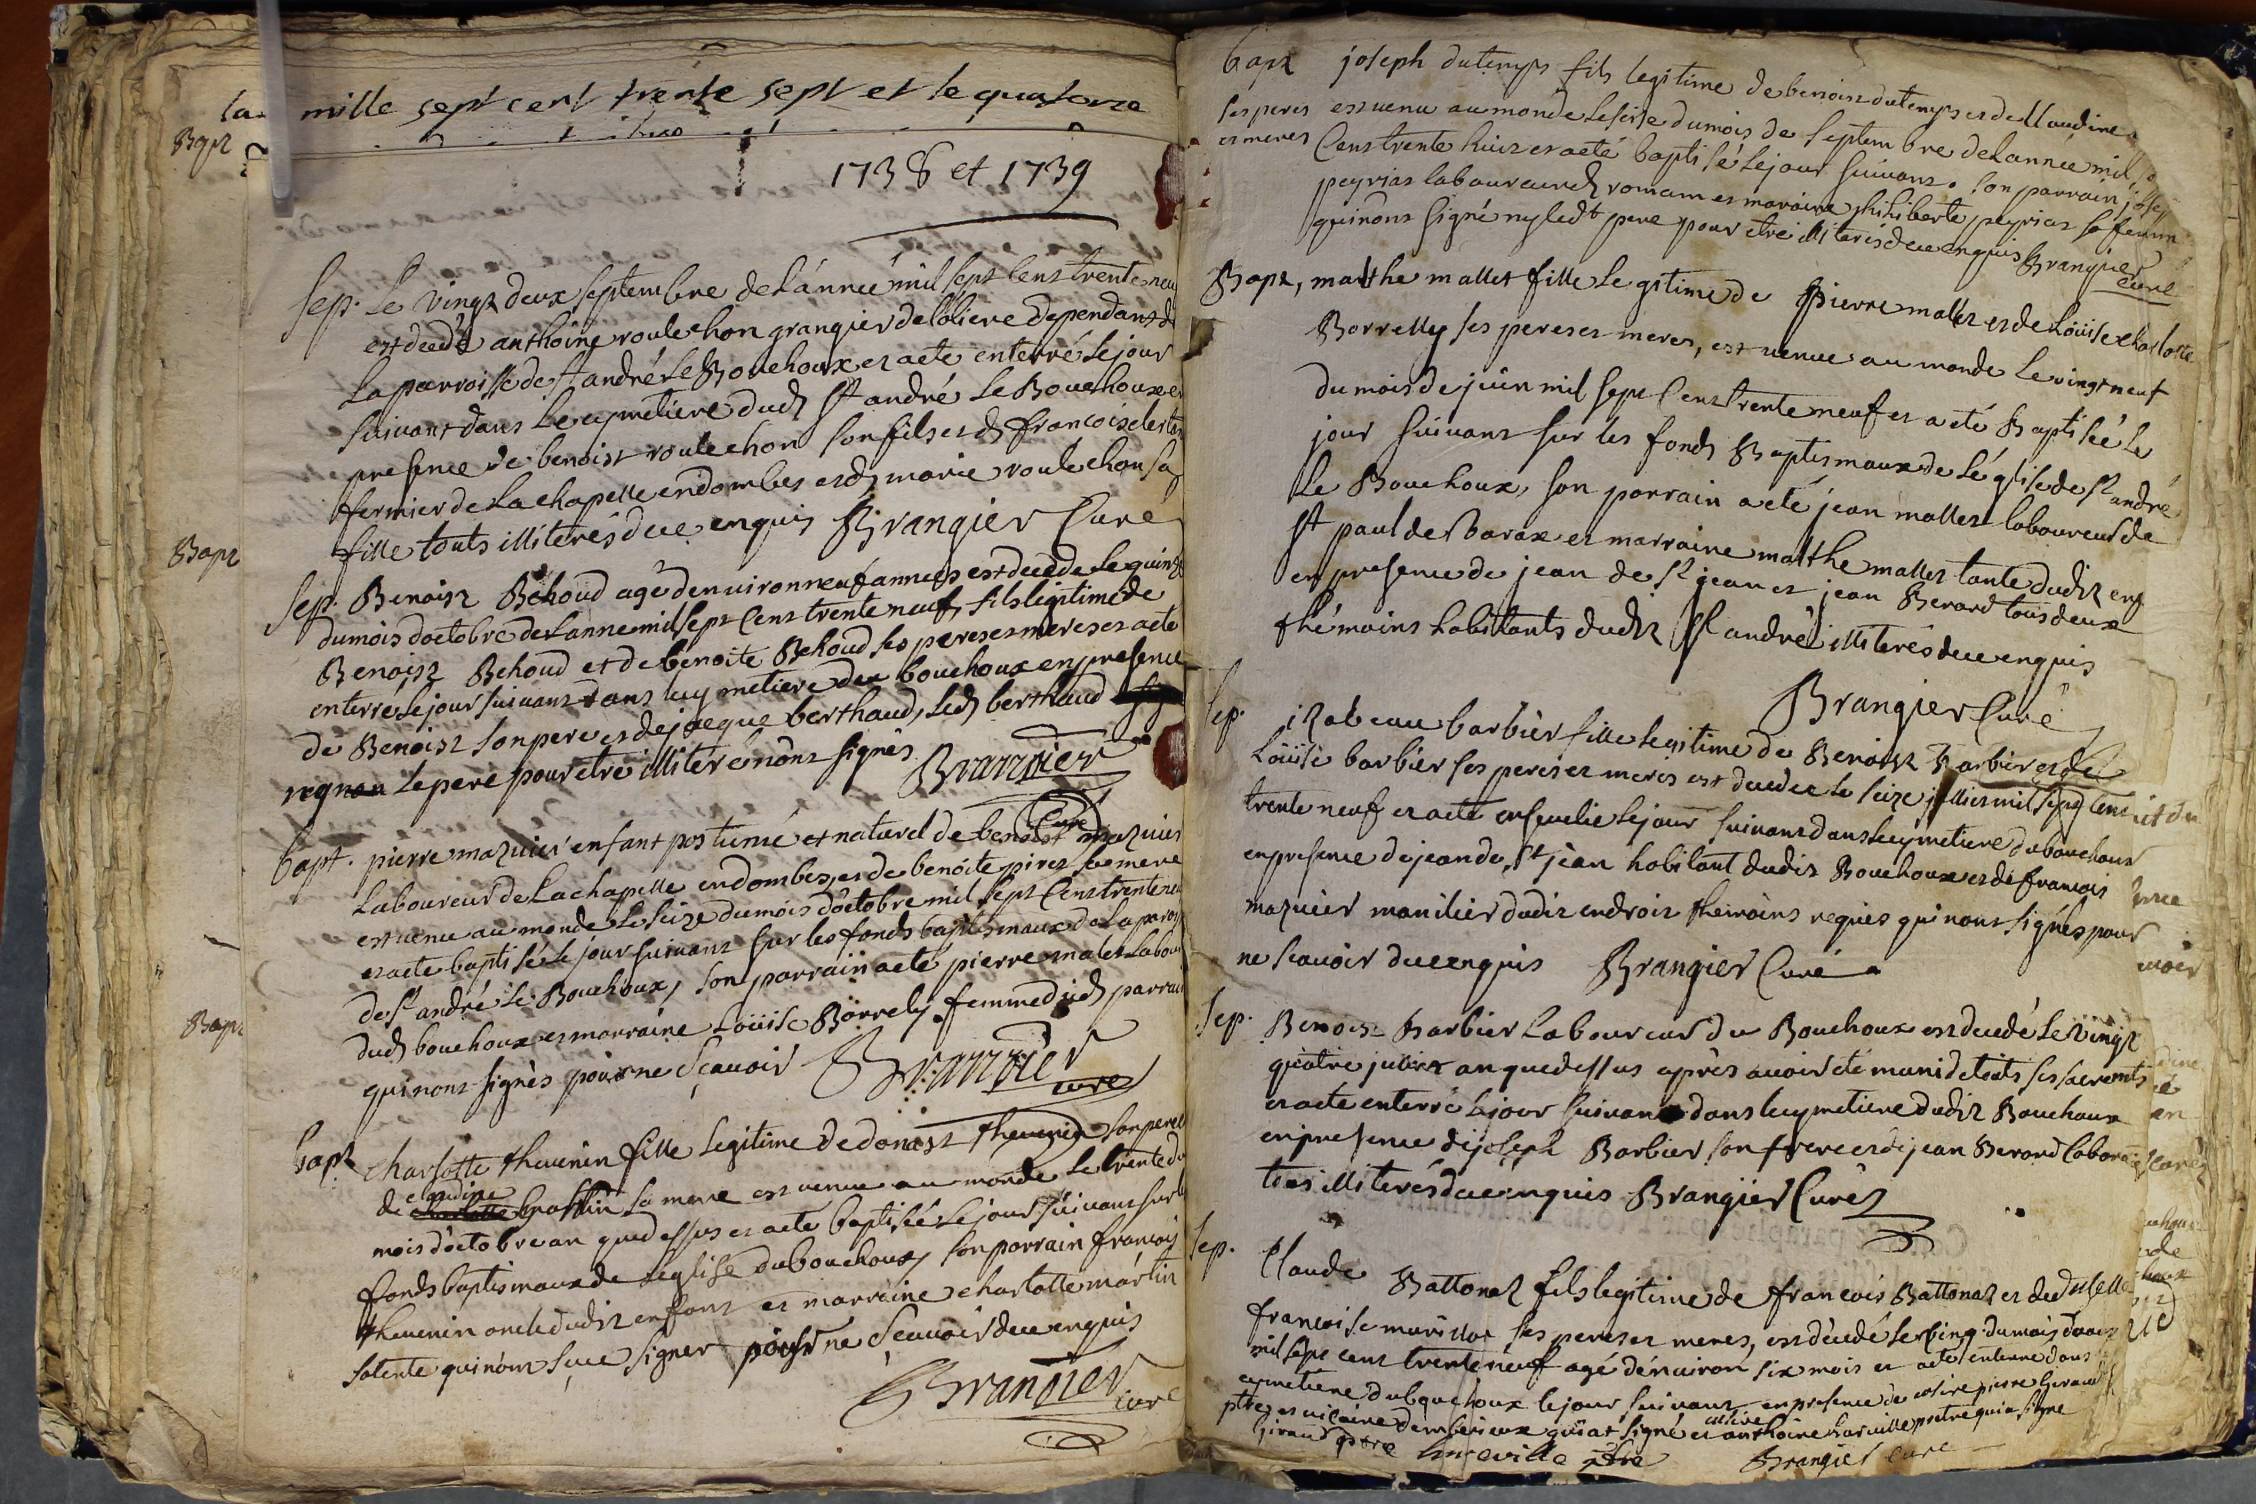 mille sept cent trente sept et le quatorze
Bapt
1738 et 1739
sep. Le vingt deux septembre de L'année mil sept Cent trente neu
est decedé anthoine roulechon grangier de loliere dependant de
La parroisse de St andré Le Bouchoux et a eté enterré Le jour
suivant dans Le cymetiere dud St andré Le Bouchoux en
presence de benoist roulechon son fils et de francois
fermier de La chapelle en dombes et de marie roulechon sa
fille touts illiterés de ce enquis Brangier Curé
Bapt
sep. Benoist Behoud agé d'environ neuf années est decedé Le quinze
du mois doctobre de L'anné mil sept Cent trente neuf, fils legitime de
Benoist Behoud et de benoite Behoud ses peres et meres et a eté
enterré Le jour suivant dans Le cymetiere du bouchoux en presence
de Benoist son pere et de jacque berthaud, Led berthaud
Le pere pour etre illiteré n'ont signés Brangier
Curé
bapt. pierre mazuier enfant postumé et naturel de benoist mazuier
Laboureur de La chapelle en dombes, et de benoite sa mere
est venu au monde Le seize du mois d'octobre mil sept Cent trente neu
et a eté baptisé Le jour suivant sur les fonds baptismaux de La parois
de St andré Le Bouchoux, son parrain a eté pierre malet Labour
Bapt
dud bouchoux et marraine Loüise Borrely femme dud parrai
qui n'ont signés pour ne sçavoir Brangier
curé
bapt charlotte thevenin fille Legitime de donast thevenin son pere
de claudine sa mere est venue au monde Le trente du
mois d'octobre an que dessus et a eté baptisée Le jour suivant sur L
fonds baptismaux de L'eglise du bouchoux, son parrain francois
thevenin oncle dudit enfant et marraine charlotte martin
sa tente qui n'ont sçue signer pour ne sçavoir de ce enquis
Brangier
curé
bapt joseph dutemps fils legitime de benoist dutemps et de Claudine
ses peres est venu au monde Le seize du mois de septembre de L'année mil
et meres Cent trente huit et a eté baptisé Le jour suivant. son parrain josep
peyriat laboureur de romam et maraine philiberte peyriat sa femm
qui n'ont signé ny ledt pere pour etre illiterés de ce enquis Brangier
curé
Bapt, marthe mallet fille Legitime de pierre malet et de Loüise charlotte
Borrelly ses peres et meres, est venue au monde Le vingt neuf
du mois de juin mil sept Cent trente neuf et a eté Baptisée Le
jour suivant sur les fonds Baptismaux de L'église de St andré
Le Bouchoux, son parrain a eté jean mallet laboureur de
St paul de Varax et marraine marthe mallet tante dudit enf
en presence de jean de St jean et jean Berard tous deux
thémoins habitants dudit St andré illiterés de ce enquis
Brangier Curé
sep. izabeau barbier fille legitime de Benoist Barbier et de
Loüise barbier ses peres et meres est decedée Le seize juillet mil sept Cent
trente neuf et a eté ensevelie Le jour suivant dans Le cymetiere du bouchoux
en presence de jean de St jean habitant dudit Bouchoux et de francois
mazuier manilier dudit endroit themoins requis qui n'ont signés pour
ne scavoir de ce enquis Brangier Curé
sep. Benoist Barbier Laboureur du Bouchoux est decedé Le vingt
quatre juillet an que dessus après avoir eté muni de touts ses sacremts
et a eté enterré Le jour suivant dans Le cymetiere dudit Bouchoux
en presence de joseph Barbier son frere et de jean Berard Labore
tous illiterés de ce enquis Brangier Curé
sep. Claude Battonat fils legitime de francois Battonat et de dslle
francoise ses peres et meres, est décedé Le cinq du mois d'aout
mil sept cent trente neuf agé dénviron six mois et a eté enterré dans
cymetiere du bouchoux Le jour suivant en presence de pierre Giraud
ptre et vicaire d'amberieux qui at signé et anthoine prêtre qui a signe
Giraud ptre ptre Brangier curé